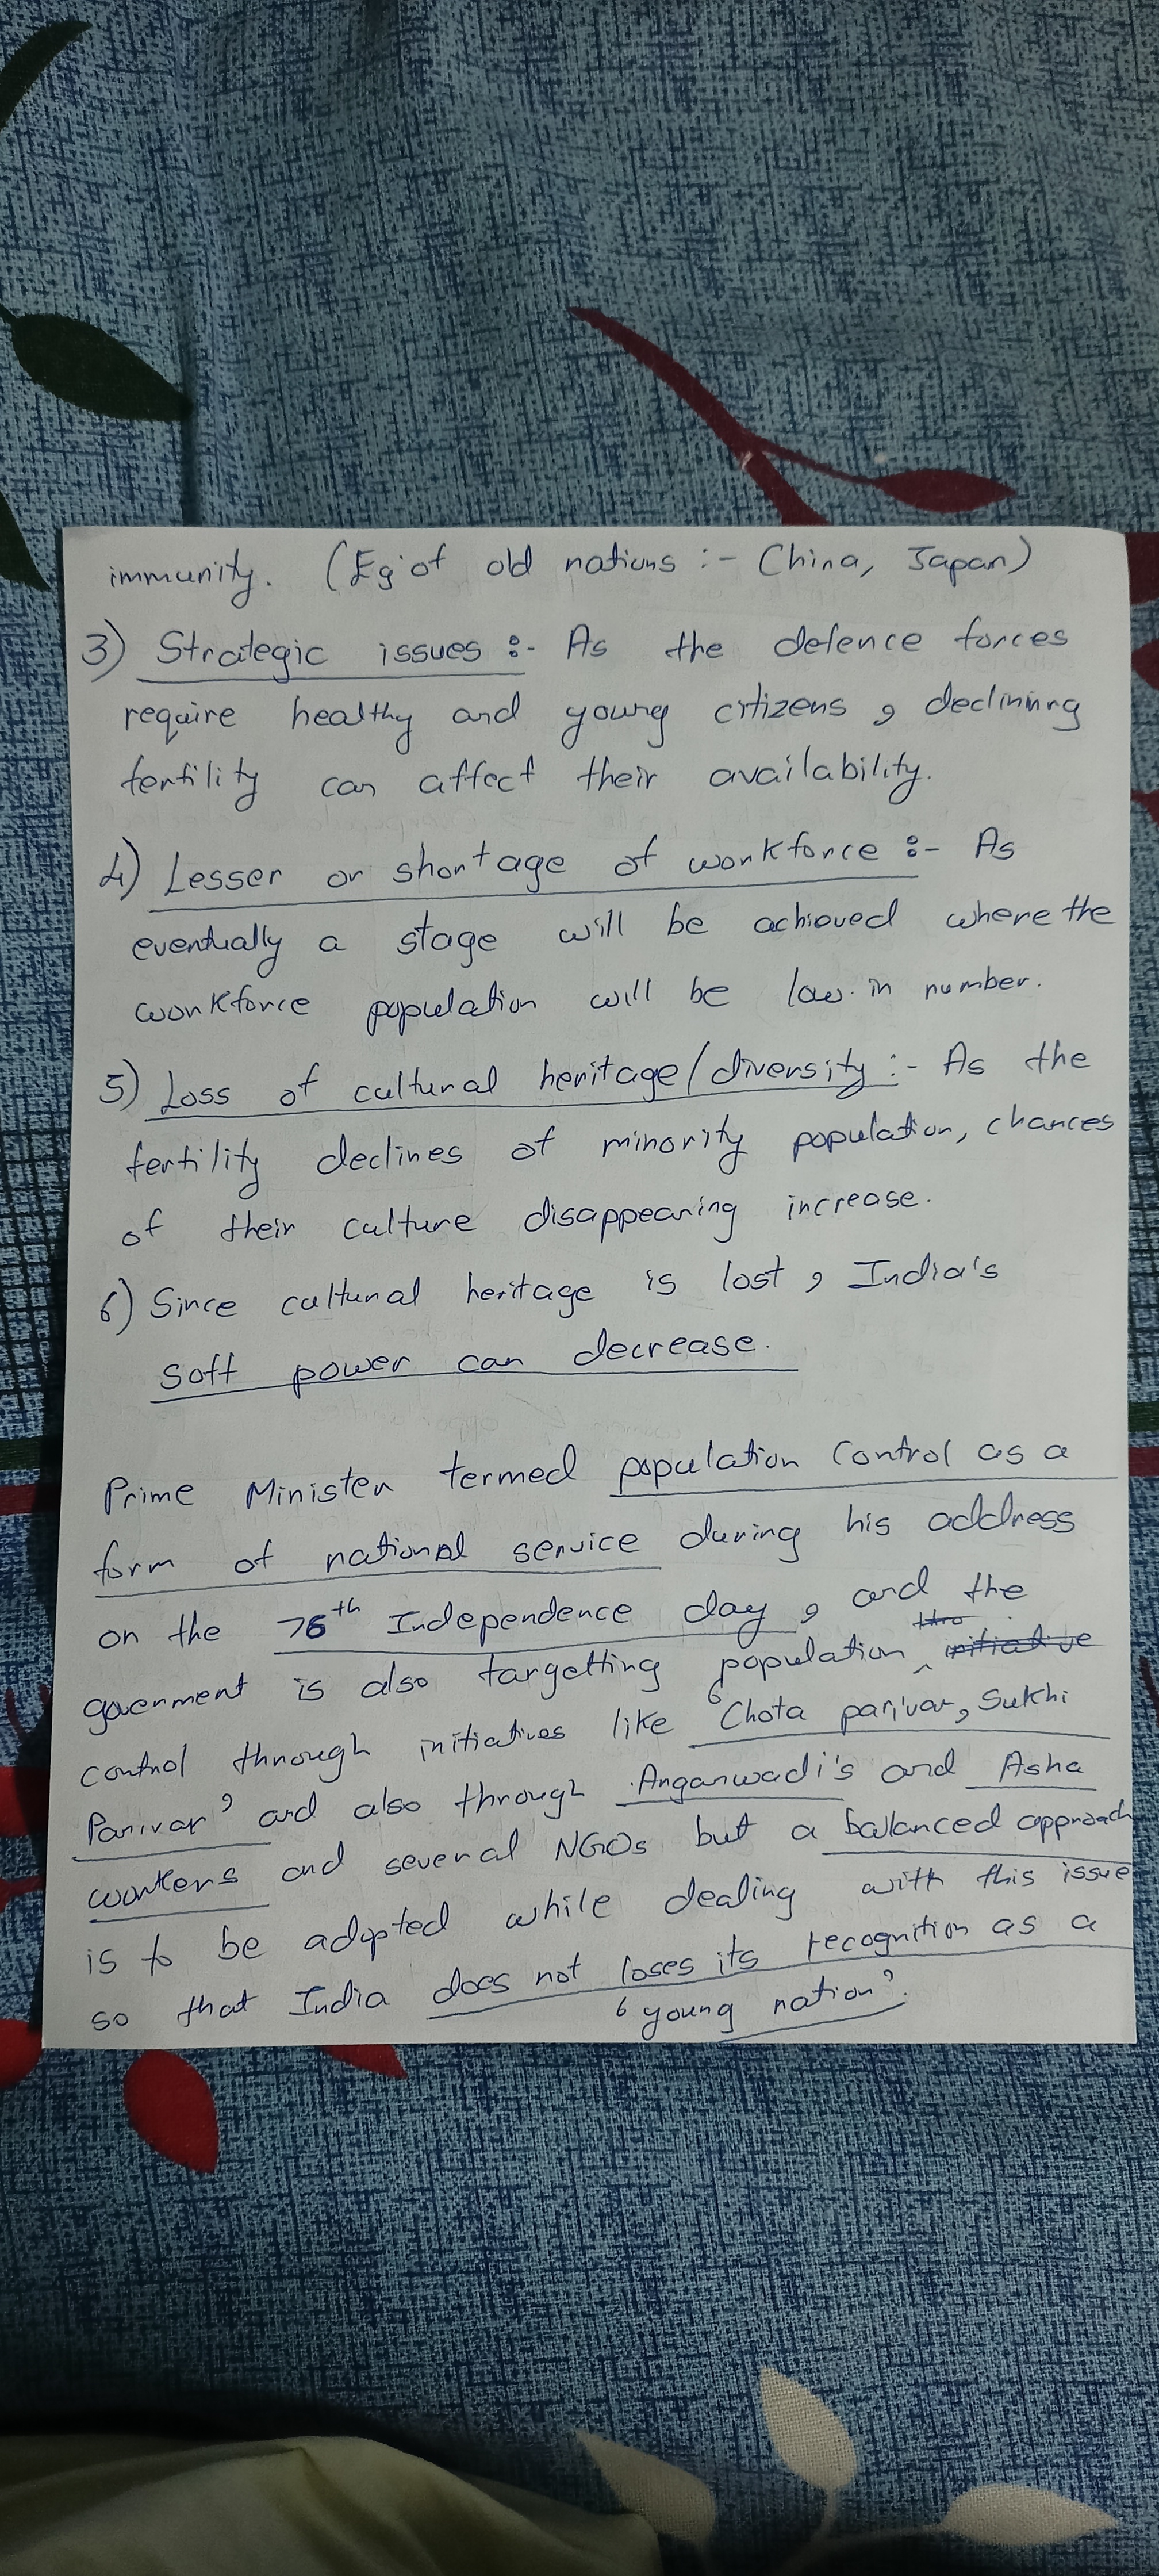 immunity. (Eg of old nations :- China, Japan)
3) Strategic issues :- As the defence forces
require healthy and young citizens, declining
fertility can affect their availability.
4) Lesser or shortage of workforce :- As
eventually a stage will be achieved where the
workforce population will be low in number.
5) Loss of cultural heritage/diversity :- As the
fertility declines of minority population, chances
of their culture disappearing increase.
6) Since cultural heritage is lost, India's
soft power can decrease.
Prime Minister termed population control as a
form of national service during his address
on the 76th Independence day, and the
government is also targetting population initiative
control through initiatives like 'Chota parivar, Sukhi
Parivar' and also through Anganwadi's and Asha
workers and several NGOs but a balanced approach
is to be adopted while dealing with this issue
so that India does not loses its recognition as a
'young nation'.